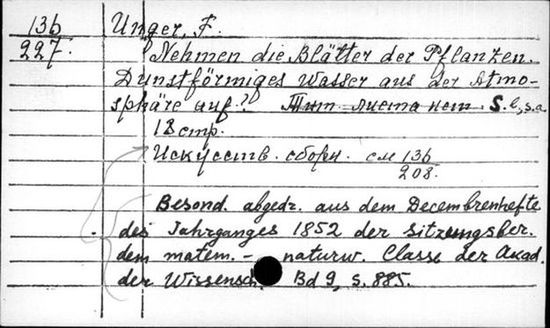 136 Unger, F.
227. Nehmen die Blätter der Pflanzen.
Dunstförmiges Wasser aus der Atmo-
sphäre auf? Тит листа нет. S. l., s. a.
18 стр.
Искусств. сборн. см 136
208.
Besond. abgedr. aus dem Decembrenhefte
des Jahrganges 1852 der Sitzungsber.
dem matem. - naturw. Classe der Akad.
der Wissensch. Bd 9, S. 885.